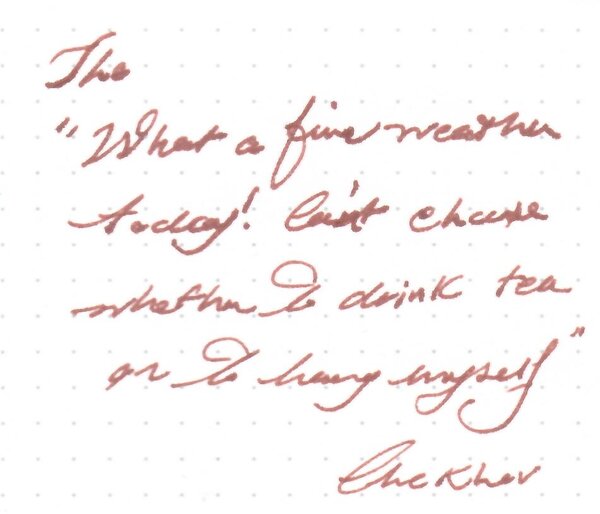 The
"What a fine weather
today! Can't choose
whether to drink tea
or to hang myself"
Chekhov